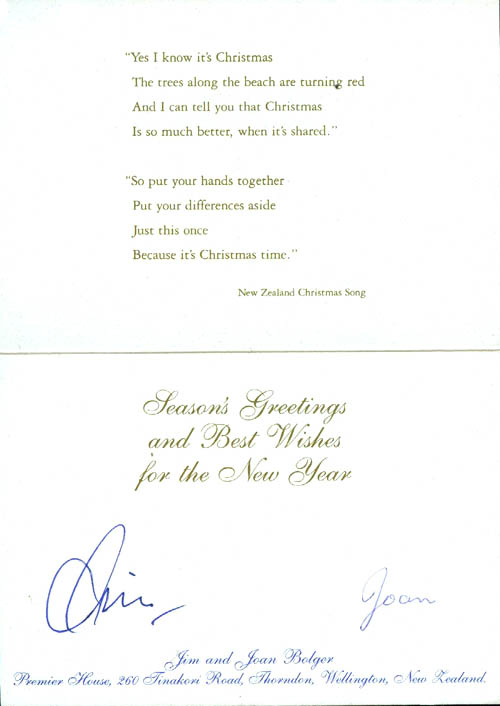 "Yes I know it's Christmas
The trees along the beach are turning red
And I can tell you that Christmas
Is so much better, when it's shared."
"So put your hands together
Put your differences aside
Just this once
Because it's Christmas time."
New Zealand Christmas Song
Season's Greetings
and Best Wishes
for the New Year
Jim
Joan
Jim and Joan Bolger
Premier House, 260 Tinakori Road, Thorndon, Wellington, New Zealand.